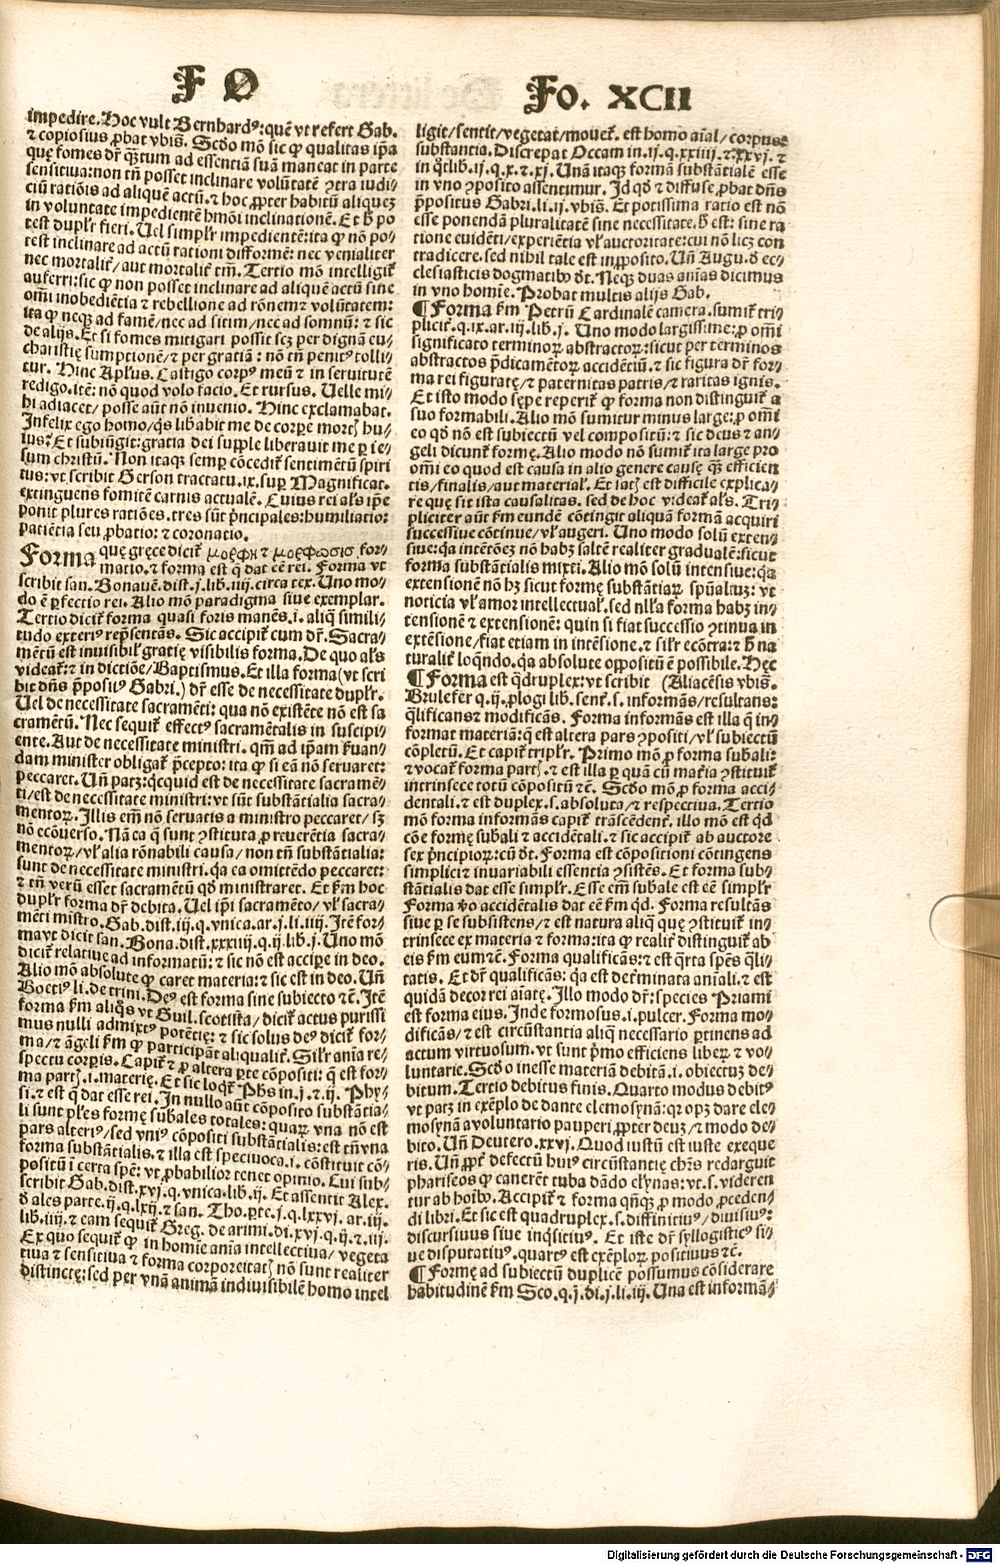 F O
Fo. XCII
impedire. Hoc vult Bernhardꝰ: quē vt refert Gab.
⁊ copiosius ꝓbat vbi s̄. Scd̄o mō sic ꝙ qualitas ip̄a
quę fomes dr̄ qꝫtum ad essentiā suā maneat in parte
sensitiua: non tn̄ posset inclinare volūtatē ↄtra iudi⸗
ciū ratiōis ad aliquē actū. ⁊ hoc ꝓpter habitū aliquez
in voluntate impedientē hmōi inclinationē. Et h̄ po
test duplr̄ fieri. Uel simplr̄ impedientē: ita ꝙ nō po⸗
test inclinare ad actū rationi difformē: nec venialiter
nec mortalit̄/ aut mortalit̄ tm̄. Tertio mō intelligit̄
auferri: sic ꝙ non posset inclinare ad aliquē actū sine
om̄i inobediētia ⁊ rebellione ad rōnem ⁊ volūtatem:
ita ꝙ neqꝫ ad famē/ nec ad sitim/ nec ad somnū: ⁊ sic
de alijs. Et si fomes mitigari possit scꝫ per dignā eu⸗
charistię sumptionē ⁊ per gratiā: nō tn̄ penitꝰ tolli⸗
tur. Hinc Apl̄us. Castigo corpꝰ meū ⁊ in seruitutē
redigo. itē: nō quod volo facio. Et rursus. Uelle mi⸗
hi adiacet/ posse aūt nō inuenio. Hinc exclamabat.
Infelix ego homo/ qs̄ liberabit me de corpe mortꝭ hu⸗
ius? Et subiūgit: gratia dei supple liberauit me ꝑ ie⸗
sum christū. Non itaqꝫ semꝑ cōcedit̄ sentimētū spiri
tus: vt scribit Gerson tractatu. ix. suꝑ Magnificat.
extinguens fomitē carnis actualē. Cuius rei al̄s ip̄e
ponit plures ratiōes. tres sūt p̄ncipales: humiliatio:
patiētia seu ꝓbatio: ⁊ coronatio.
Forma quę gręce dicit̄ μορφη ⁊ μορφωσισ for⸗
matio. ⁊ forma est q̄ dat eē rei. Forma vt
scribit san. Bonauē. dist. j. lib. iiij. circa tex. Uno mo⸗
do ē ꝑfectio rei. Alio mō paradigma siue exemplar.
Tertio dicit̄ forma quasi foris manēs. i. aliq̄ simili⸗
tudo exteriꝰ rep̄sentās. Sic accipit̄ cum dr̄. Sacra⸗
mētū est inuisibil̄ gratię visibilis forma. De quo al̄s
videat̄: ⁊ in dictiōe/ Baptismus. Et illa forma (vt scri
bit dn̄s p̄positꝰ Gabri.) dr̄ esse de necessitate duplr̄.
Uel de necessitate sacramēti: qua nō existēte nō est sa
cramētū. Nec sequit̄ effectꝰ sacramētalis in suscipi⸗
ente. Aut de necessitate ministri. qm̄ ad ip̄am ẜuan⸗
dam minister obligat̄ p̄cepto: ita ꝙ si eā nō seruaret:
peccaret. Un̄ patꝫ: q̇cquid est de necessitate sacramē⸗
ti/ est de necessitate ministri: vt sūt substātialia sacra⸗
mentoꝝ. Illis em̄ nō seruatis a ministro peccaret/ sꝫ
nō ecōuerso. Nā ea q̄ sunt ↄstituta ꝓ reuerētia sacra⸗
mentoꝝ/ vl̄ alia rōnabili causa/ non tn̄ substātialia:
sunt de necessitate ministri. q̇a ea omittēdo peccaret:
⁊ tn̄ verū esset sacramētū qd̄ ministraret. Et ẜm hoc
duplr̄ forma dr̄ debita. Uel ip̄i sacramēto/ vl̄ sacra⸗
mēti mīstro. Gab. dist. iij. q. vnica. ar. j. li. iiij. Itē for⸗
ma vt dicit san. Bona. dist. xxxiii. q. ij. lib. j. Uno mō
dicit̄ relatiue ad informatū: ⁊ sic nō est accipe in deo.
Alio mō absolute ꝙ caret materia: ⁊ sic est in deo. Un̄
Boetiꝰ li. de trini. Deꝰ est forma sine subiecto ⁊c̄. Itē
forma ẜm aliq̄s vt Guil. scotista/ dicit̄ actus purissi
mus nulli admixtꝰ potētię: ⁊ sic solus deꝰ dicit̄ for⸗
ma/ ⁊ āgeli ẜm ꝙ participāt aliqualit̄. Silr̄ aīa re⸗
spectu corꝑis. Capit̄ ⁊ ꝓ altera ꝑte cōpositi: q̄ est for⸗
ma partꝭ. i. materię. Et sic loq̄t̄ Phs in. j. ⁊. ij. Phy⸗
si. ⁊ est q̄ dat esse rei. In nullo aūt cōposito substātia⸗
li sunt pl̄es formę sub̄ales totales: quaꝝ vna nō est
pars alteriꝰ/ sed vniꝰ cōpositi substātialis: est tn̄ vna
forma substātialis. ⁊ illa est specifica. i. cōstituit cō⸗
positū ī certa spē: vt ꝓbabilior tenet opinio. Cui sub⸗
scribit Gab. dist. xvj. q. vnica. lib. ij. Et assentit Alex.
d̄ ales parte. ij. q. lxij. ⁊ san. Tho. pte. j. q. lxxvj. ar. iij.
lib. iiij. ⁊ eam sequit̄ Greg. de arimi. di. xvj. q. ij. ⁊. iij.
Ex quo sequit̄ ꝙ in homīe anīa intellectiua/ vegeta
tiua ⁊ sensitiua ⁊ forma corporeitatꝭ nō sunt realiter
distinctę: sed per vnā animā indiuisibilē homo intel
ligit/ sentit/ vegetat/ mouet̄. est homo aīal/ corpus⸗
substantia. Discrepat Occam in. ij. q. xxiiij. ⁊. xxvj. ⁊
in q̇tlib. ij. q. x. ⁊. xj. Unā itaqꝫ formā substātialē esse
in vno ↄposito assentimur. Id qd̄ ⁊ diffuse ꝓbat dn̄s
p̄positus Gabri. li. ij. vbi s̄. Et potissima ratio est nō
esse ponendā pluralitatē sine necessitate. h̄ est: sine ra
tione euidēti/ experiētia vl̄ auctoritate: cui nō licꝫ con
tradicere. sed nihil tale est in ꝓposito. Un̄ Augu. d̄ ec⸗
clesiasticis dogmatibꝰ dt̄. Neqꝫ duas aīas dicimus
in vno homīe. Probat multis alijs Gab.
¶ Forma ẜm Petrū Cardinalē camera. sumit̄ tri⸗
plicit̄. q. ix. ar. iij. lib. j. Uno modo largissime: ꝓ om̄i
significato terminoꝝ abstractoꝝ: sicut per terminos
abstractos p̄dicamētoꝝ accidētiū. ⁊ sic figura dr̄ for⸗
ma rei figuratę/ ⁊ paternitas patris/ ⁊ raritas ignis.
Et isto modo sępe reperit̄ ꝙ forma non distinguit̄ a
suo formabili. Alio mō sumitur minus large: ꝓ om̄i
eo qd̄ nō est subiectū vel compositū: ⁊ sic deus ⁊ an⸗
geli dicunt̄ formę. Alio modo nō sumit̄ ita large pro
om̄i eo quod est causa in alio genere causę qꝫ efficien
tis/ finalis/ aut material̄. Et iatꝭ est difficile explica⸗
re quę sit ista causalitas. sed de hoc videat̄ al̄s. Tri⸗
pliciter aūt ẜm eundē cōtingit aliquā formā acquiri
successiue cōtinue/ vl̄ augeri. Uno modo solū exten⸗
siue: q̇a intētōeꝫ nō habꝫ saltē realiter gradualē: sicut
forma substātialis mixti. Alio mō solū intensiue: q̇a
extensionē nō hꝫ sicut formę substātiaꝝ spūaliuꝫ: vt
noticia vl̄ amor intellectual̄. sed nl̄la forma habꝫ in⸗
tensionē ⁊ extensionē: quin si fiat successio ↄtinua in
extēsione/ fiat etiam in intēsione. ⁊ silr̄ ecōtra: ⁊ h̄ na
turalit̄ loq̄ndo. q̇a absolute oppositū ē possibile. Hęc
¶ Forma est q̇druplex: vt scribit (Aliacēsis vbi s̄.
Brulefer q. ij. ꝓlogi lib. sent̄. s. informās/ resultans:
q̇lificans ⁊ modificās. Forma informās est illa q̄ in⸗
format materiā: q̄ est altera pars ↄpositi/ vl̄ subiectū
cōpletū. Et capit̄ triplr̄. Primo mō ꝓ forma sub̄ali:
⁊ vocat̄ forma partꝭ. ⁊ est illa ꝑ quā cū mat̄ia ↄstituit̄
intrinsece totū cōpositū ⁊c̄. Scd̄o mō ꝓ forma acci⸗
dentali. ⁊ est duplex. s. absoluta/ ⁊ respectiua. Tertio
mō forma informās capit̄ trāscēdent̄. illo mō est q̇d
cōe formę sub̄ali ⁊ accidētali. ⁊ sic accipit̄ ab auctore
sex p̄ncipioꝝ: cū dt̄. Forma est cōpositioni cōtingens
simplici ⁊ inuariabili essentia ↄsistēs. Et forma sub⸗
stātialis dat esse simplr̄. Esse em̄ sub̄ale est eē simplr̄
Forma v̄o accidētalis dat eē ẜm qd. Forma resultās
siue ꝑ se subsistens/ ⁊ est natura aliq̄ quę ↄstituit̄ in⸗
trinsece ex materia ⁊ forma: ita ꝙ realit̄ distinguit̄ ab
eis ẜm eum ⁊c̄. Forma qualificās: ⁊ est q̇rta spēs q̄li⸗
tatis. Et dr̄ qualificās: q̇a est det̄minata anīali. ⁊ est
quidā decor rei aīatę. Illo modo dr̄: species Priami
est forma eius. Inde formosus. i. pulcer. Forma mo⸗
dificās/ ⁊ est circūstantia aliq̄ necessario ꝑtinens ad
actum virtuosum. vt sunt p̄mo efficiens liberꝫ ⁊ vo⸗
luntarie. Scd̄o inesse materiā debitā. i. obiectuꝫ de⸗
bitum. Tertio debitus finis. Quarto modus debitꝰ
vt patꝫ in exēplo de dante elemosynā: qꝛ opꝫ dare ele⸗
mosynā a voluntario pauperi ꝓpter deuꝫ/ ⁊ modo de⸗
bito. Un̄ Deutero. xxvj. Quod iustū est iuste exeque
ris. Un̄ ꝓpt̄ defectū huiꝰ circūstantię chr̄s redarguit
phariseos ꝙ canerēt tuba dādo elynas: vt. s. videren
tur ab hoībꝰ. Accipit̄ ⁊ forma qn̄qꝫ ꝓ modo ꝓceden⸗
di libri. Et sic est quadruplex. s. diffinitiuꝰ/ diuisiuꝰ:
discursiuus siue inq̇sitiuꝰ. Et iste dr̄ syllogisticꝰ si⸗
ue disputatiuꝰ. quartꝰ est exēploꝝ positiuus ⁊c̄.
¶ Formę ad subiectū duplicē possumus cōsiderare
habitudinē ẜm Sco. q. j. di. j. li. iij. Una est informā⸗
Digitalisierung gefördert durch die Deutsche Forschungsgemeinschaft - DFG